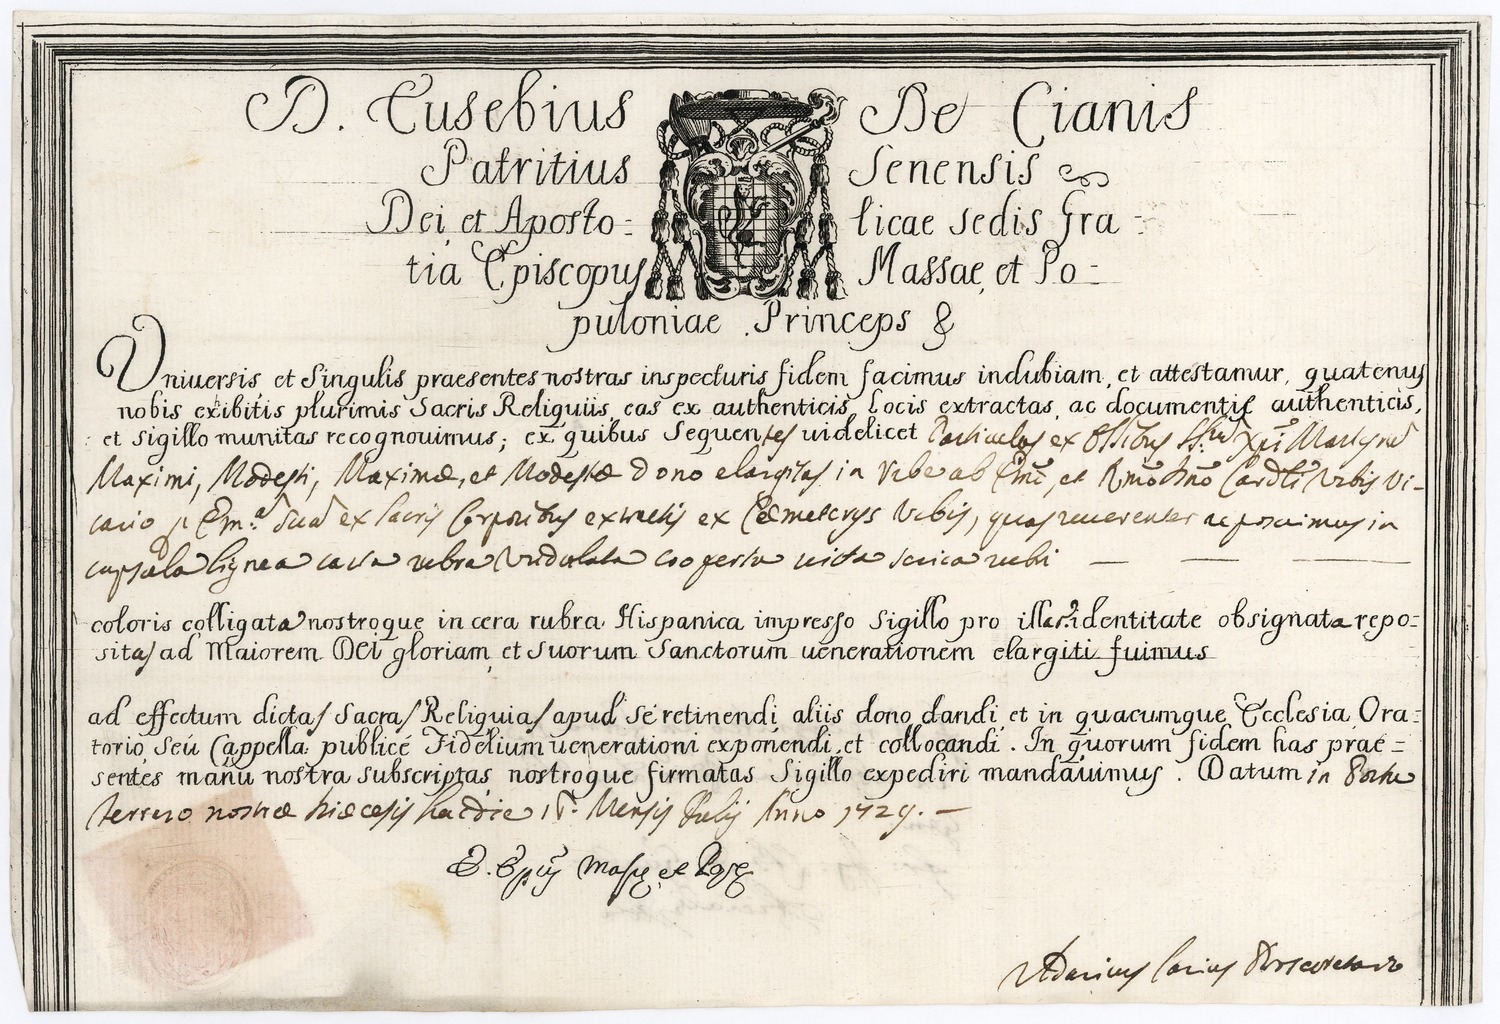 D. Eusebius De Cianis
Patritius Senensis
Dei et Aposto= licae sedis Gra=
tia Episcopus Massae, et Po=
puloniae Princeps &
Vniuersis et Singulis praesentes nostras inspecturis fidem facimus indubiam, et attestamur, quatenus
nobis exhibitis plurimis Sacris Reliquiis, eas ex authenticis Locis extractas, ac documentis authenticis,
et sigillo munitas recognouimus; ex quibus Sequentes uidelicet Particulas ex Ossibus SS.rum Xpi Martyrum
Maximi, Modesti, Maximæ, et Modestæ dono elargitas in Vrbe ab Emo, et Rmo Dno Cardli Vrbis Vi-
cario Em.a Sua ex Sacris Corporibus extractis ex Cœmeterys Vrbis, quas reuerenter reposuimus in
capsula lignea carta rubra Vndulata cooperta uitta serica rubri
coloris colligata nostroque in cera rubra Hispanica impresso Sigillo pro illar. identitate obsignata repo=
sitas ad Maiorem Dei gloriam, et suorum Sanctorum uenerationem elargiti fuimus
ad effectum dictas Sacras Reliquias apud sé retinendi, aliis dono dandi, et in quacumque Ecclesia, Ora=
torio, séu Cappella publicé Fidelium uenerationi exponendi, et collocandi. In quorum fidem has prae=
sentes manu nostra subscriptas, nostroque firmatas Sigillo expediri mandauimus. Datum in Portu
ferreo nostræ Diæcesis hac die Mensis Julij Anno 1729. —
E. Epus Massæ et